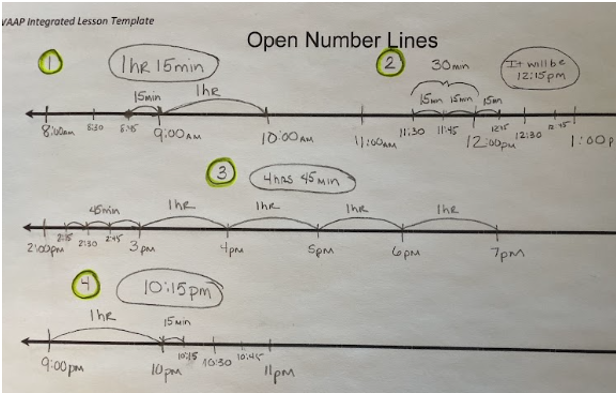 VAAP Integrated Lesson Template
Open Number Lines
1
1hr 15min
15min
1hr
8:00am 8:30 8:45 9:00am 10:00am
2
30min
It will be
12:15pm
15min 15min 15min
11:00am 11:30 11:45 12:00pm 12:15 12:30 1:00p
3
4hrs 45min
45min 1hr 1hr 1hr 1hr
2:00pm 2:15 2:30 2:45 3pm 4pm 5pm 6pm 7pm
4
10:15pm
1hr 15min
9:00pm 10pm 10:15 10:30 10:45 11pm